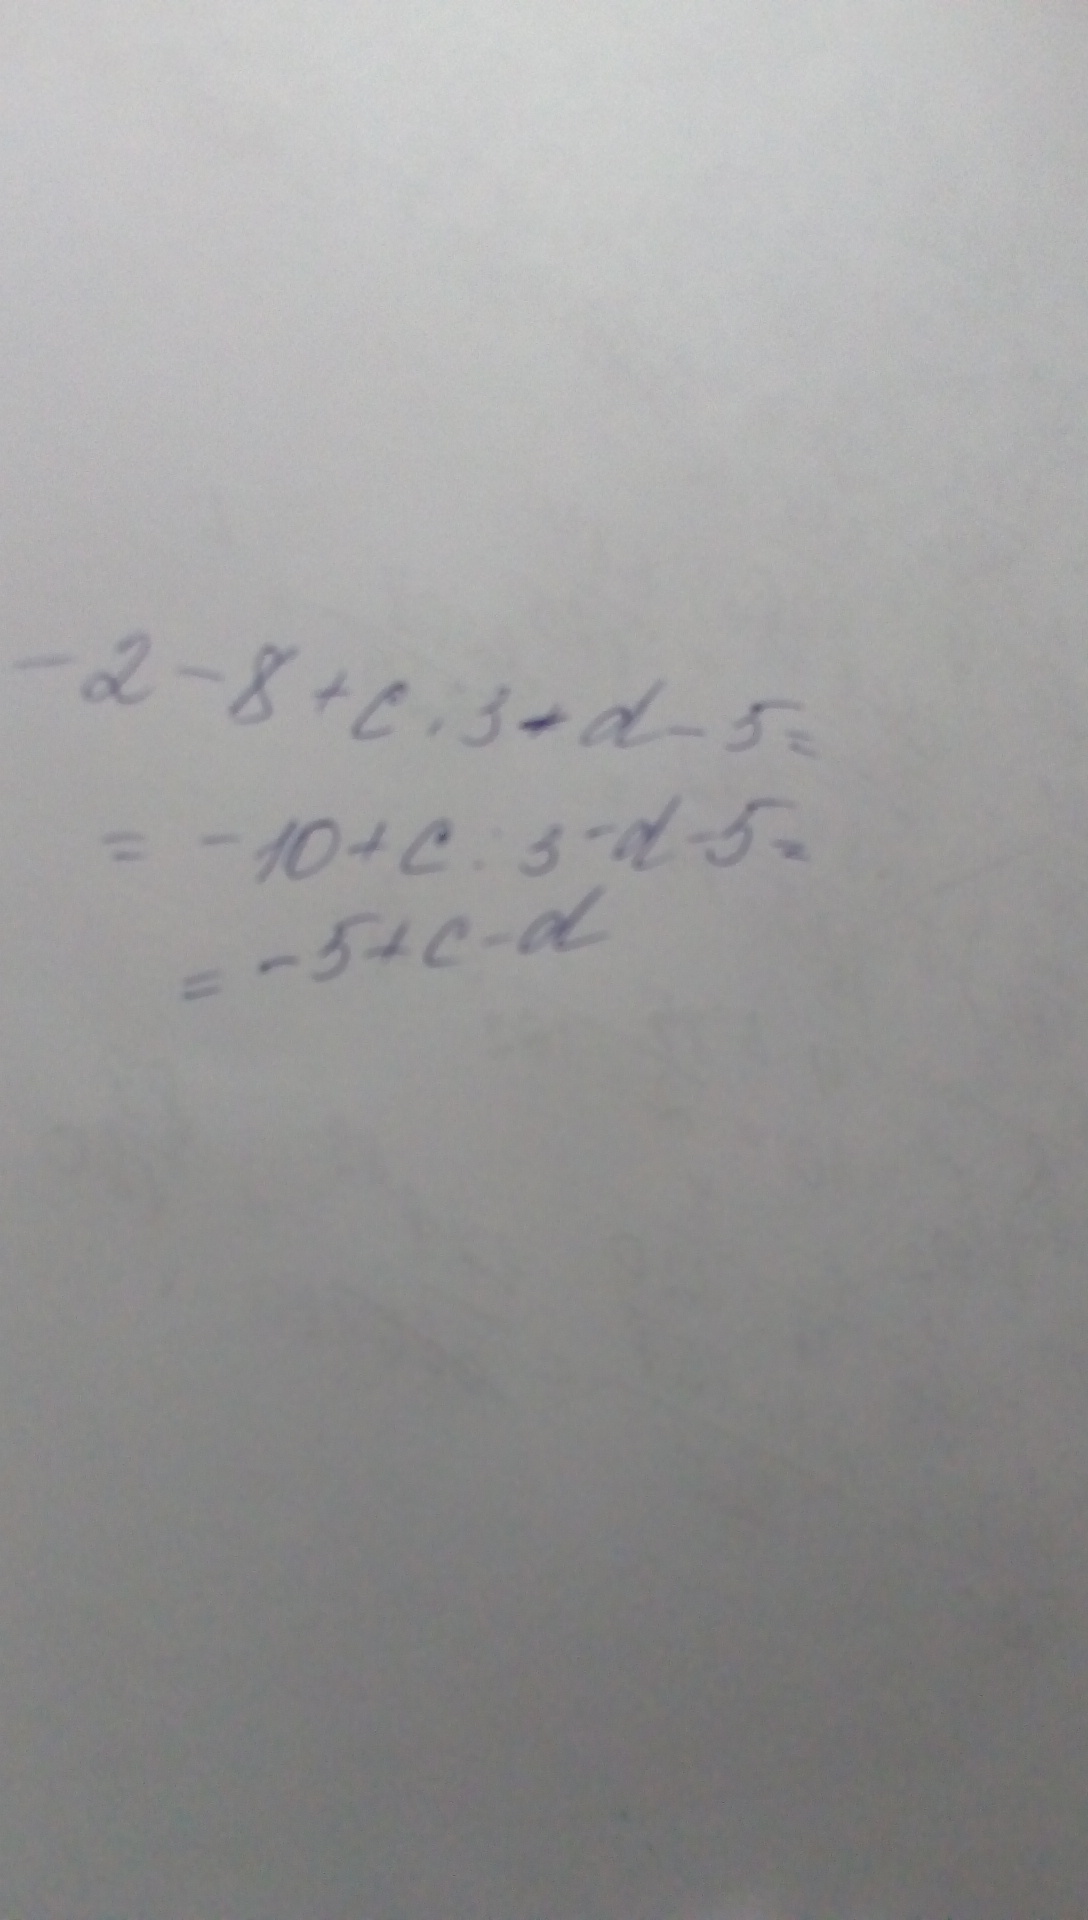 -2-8+c:3-d-5=
= -10+c:3-d-5=
= -5+c-d